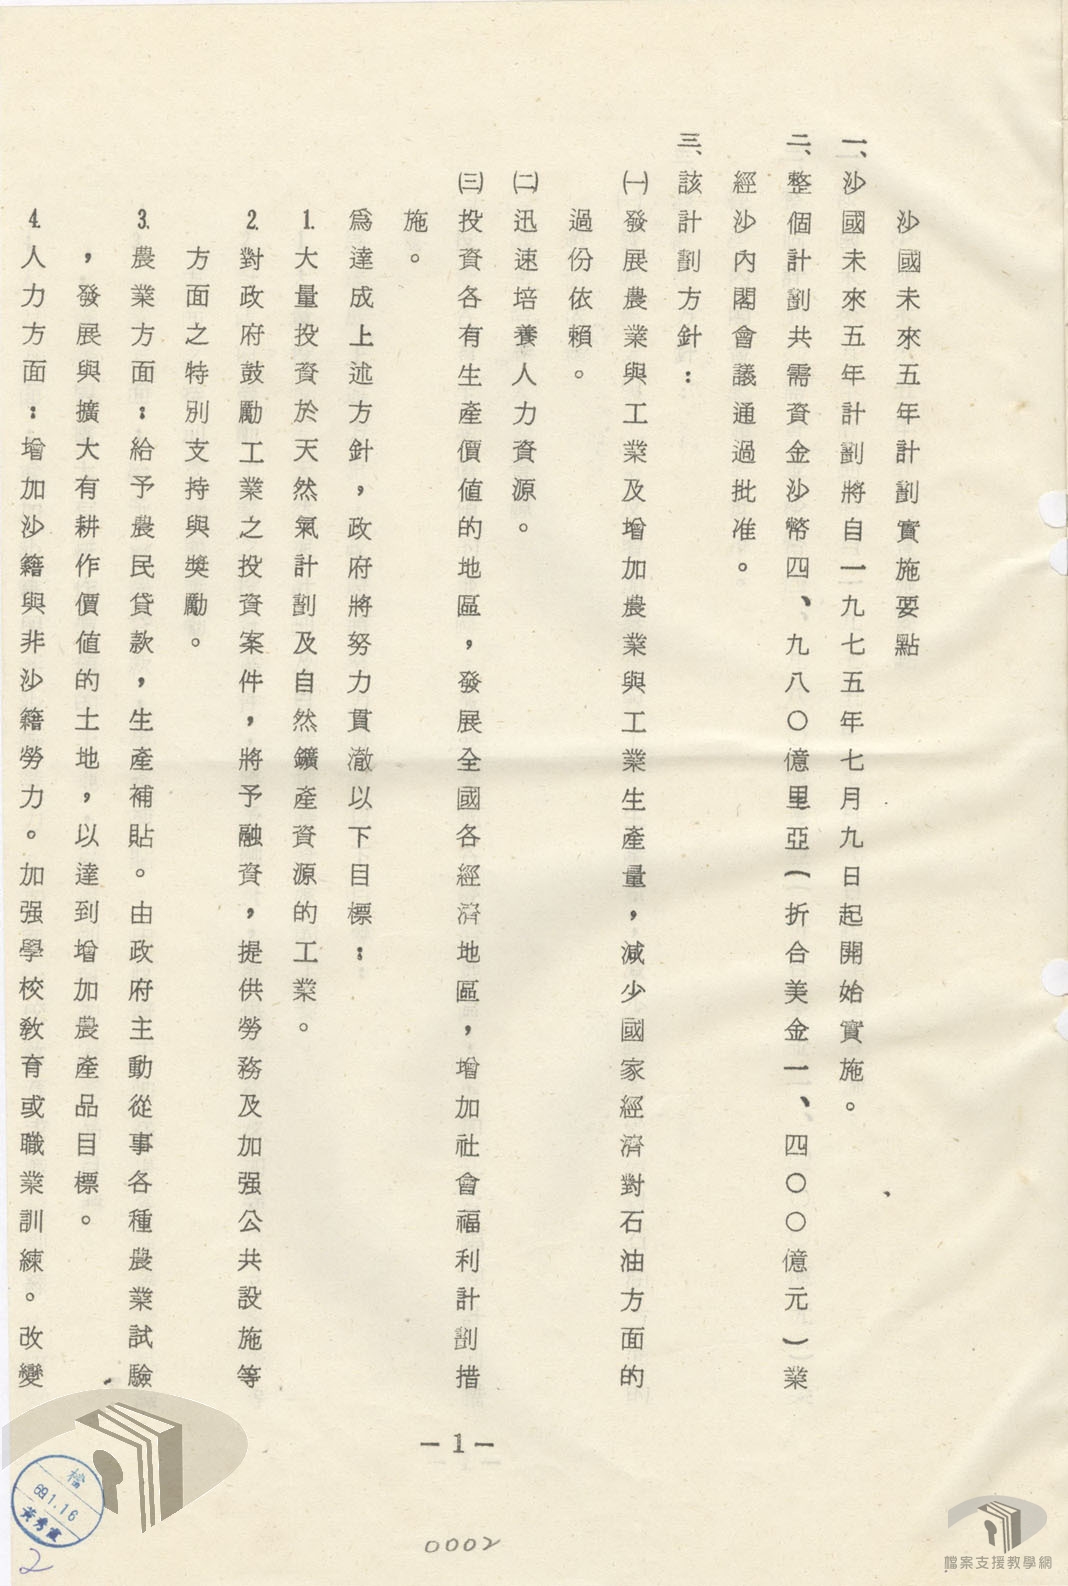 沙國未來五年計劃實施要點
一、沙國未來五年計劃將自一九七五年七月九日起開始實施。
二、整個計劃共需資金沙幣四、九八〇億里亞(折合美金一、四〇〇億元)業
經沙內閣會議通過批准。
三、該計劃方針：
㈠發展農業與工業及增加農業與工業生產量，減少國家經濟對石油方面的
過份依賴。
㈡迅速培養人力資源。
㈢投資各有生產價值的地區，發展全國各經濟地區，增加社會福利計劃措
施。
爲達成上述方針，政府將努力貫澈以下目標：
1.大量投資於天然氣計劃及自然鑛產資源的工業。
2.對政府鼓勵工業之投資案件，將予融資，提供勞務及加强公共設施等
方面之特別支持與獎勵。
3.農業方面：給予農民貸款，生產補貼。由政府主動從事各種農業試驗
，發展與擴大有耕作價值的土地，以達到增加農產品目標。
4.人力方面：增加沙籍與非沙籍勞力。加强學校敎育或職業訓練。改變
－1－
檔
69.1.16
黃秀霞
2
0002
檔案支援教學網